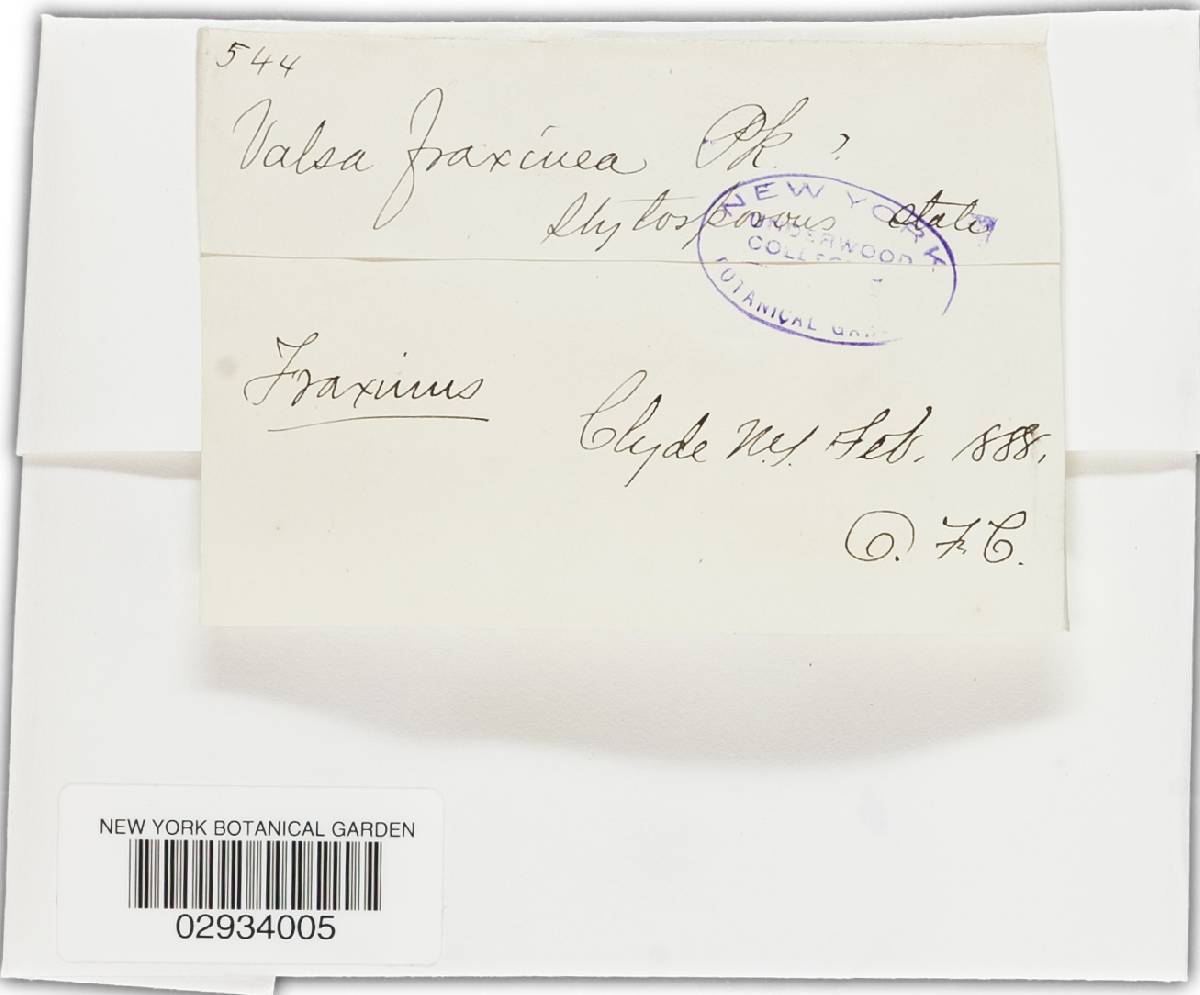 544
Valsa fraxinea Pk ?
Stylosporous state
NEW YORK
UNDERWOOD
BOTANICAL
Fraxinus
Clyde N.Y. Feb. 1888.
O. F. C.
NEW YORK BOTANICAL GARDEN
02934005